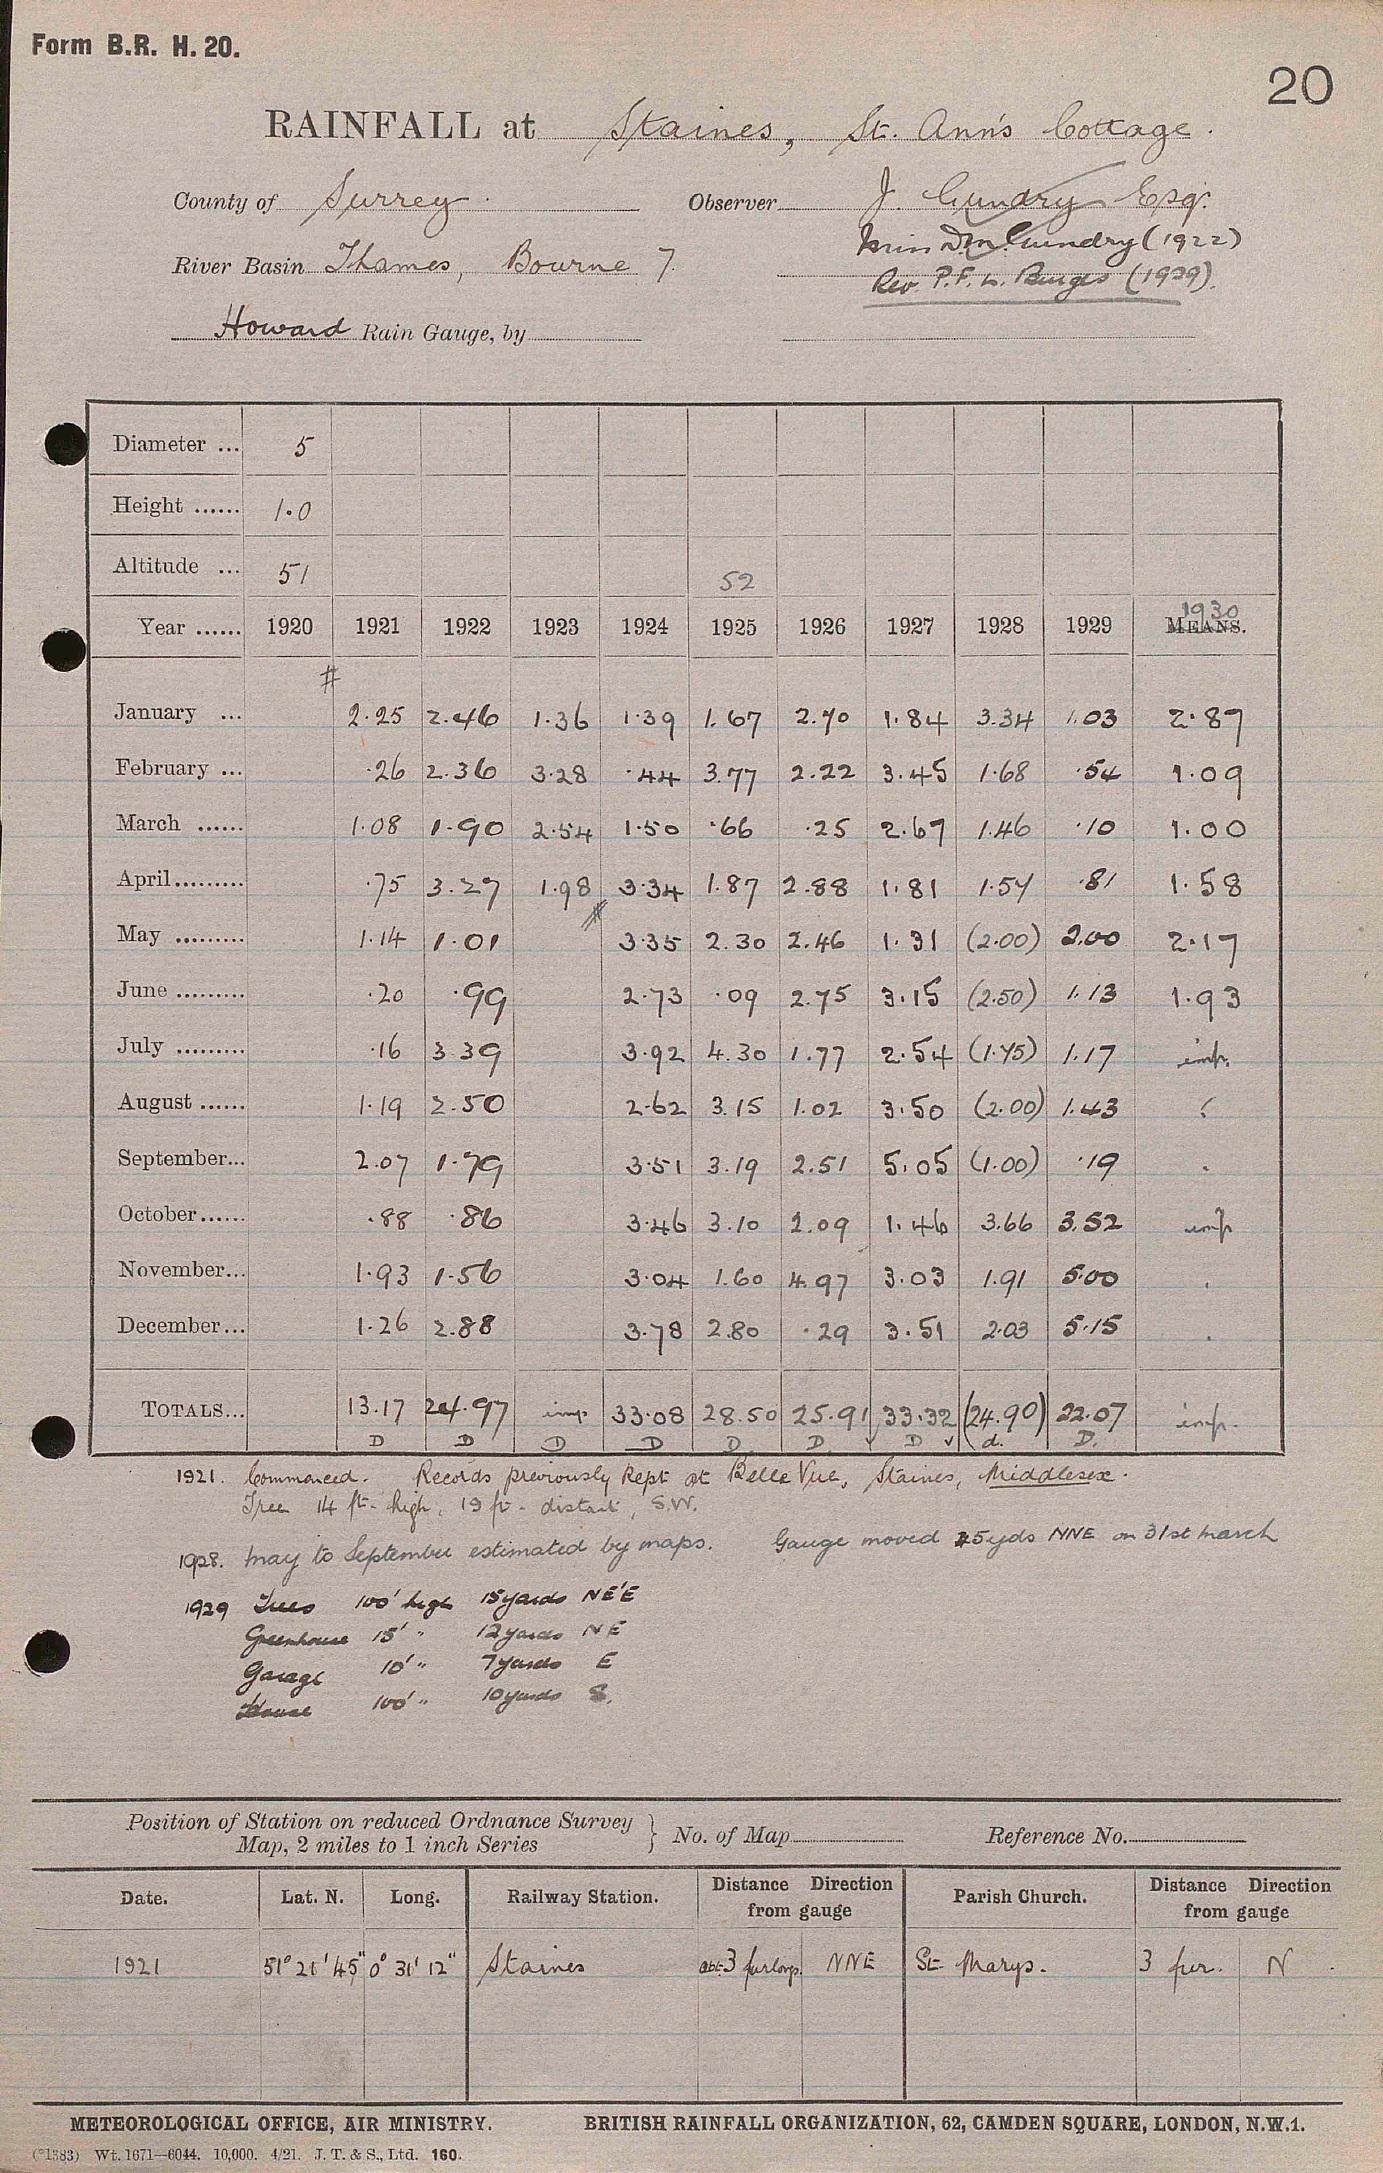 Form B.R. H. 20.
20
RAINFALL at Staines, St. Ann's Cottage.
County of Surrey. Observer J. Gundry Esqr.
Miss D.M. Gundry (1922)
River Basin Thames, Bourne 7.
Rev. P.F.L. Burges (1929).
Howard Rain Gauge, by
Diameter ... 5
Height ...... 1.0
Altitude ... 51 52
1930
Year ...... 1920 1921 1922 1923 1924 1925 1926 1927 1928 1929 MEANS.
#
January ... 2.25 2.46 1.36 1.39 1.67 2.70 1.84 3.34 1.03 2.87
February ... .26 2.36 3.28 .44 3.77 2.22 3.45 1.68 .54 1.09
March ...... 1.08 1.90 2.54 1.50 .66 .25 2.67 1.46 .10 1.00
April ......... .75 3.27 1.98 3.34 1.87 2.88 1.81 1.57 .81 1.58
#
May ......... 1.14 1.01 3.35 2.30 2.46 1.31 (2.00) 2.00 2.17
June ......... .20 .99 2.73 .09 2.75 3.15 (2.50) 1.13 1.93
July ......... .16 3.39 3.92 4.30 1.77 2.54 (1.75) 1.17 imp.
August ...... 1.19 2.50 2.62 3.15 1.02 3.50 (2.00) 1.43
September... 2.07 1.79 3.51 3.19 2.51 5.05 (1.00) .19
October...... .88 .86 3.46 3.10 2.09 1.46 3.66 3.52 imp
November... 1.93 1.56 3.04 1.60 4.97 3.03 1.91 5.00
December... 1.26 2.88 3.78 2.80 .29 3.51 2.03 5.15
TOTALS... 13.17 24.97 imp 33.08 28.50 25.91 33.32 (24.90) 22.07 imp.
D D D D D. D. D d. D.
1921. Commenced. Records previously kept at Belle Vue, Staines, Middlesex.
Tree 14 ft. high, 19 ft. distant, S.W.
1928. May to September estimated by maps. Gauge moved 25yds NNE on 31st March
1929 Trees 100' high 15 yards NE'E
Greenhouse 15' " 12 yards NE
Garage 10' " 7 yards E
House 100' " 10 yards S.
Position of Station on reduced Ordnance Survey
Map, 2 miles to 1 inch Series } No. of Map Reference No.
Date. Lat. N. Long. Railway Station. Distance Direction from gauge Parish Church. Distance Direction from gauge
1921 51° 21' 45" 0° 31' 12" Staines abt. 3 furlongs. NNE St Marys. 3 fur. N
METEOROLOGICAL OFFICE, AIR MINISTRY. BRITISH RAINFALL ORGANIZATION, 62, CAMDEN SQUARE, LONDON, N.W.1.
(*1383) Wt. 1671—6044. 10,000. 4/21. J. T. & S., Ltd. 160.